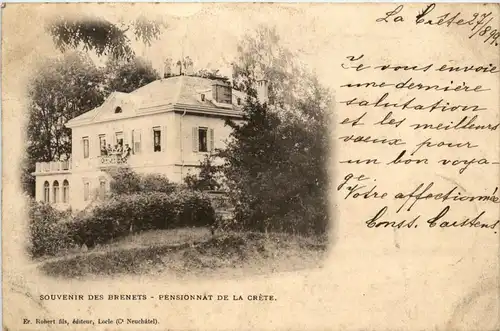 La Crête 27/8 99
Je vous envoie
une dernière
salutation
et les meilleurs
vœux pour
un bon voya-
ge.
Votre affectionée
Const. Carstens.
SOUVENIR DES BRENETS - PENSIONNAT DE LA CRÊTE.
Er. Robert fils, éditeur, Locle (Cn Neuchâtel).